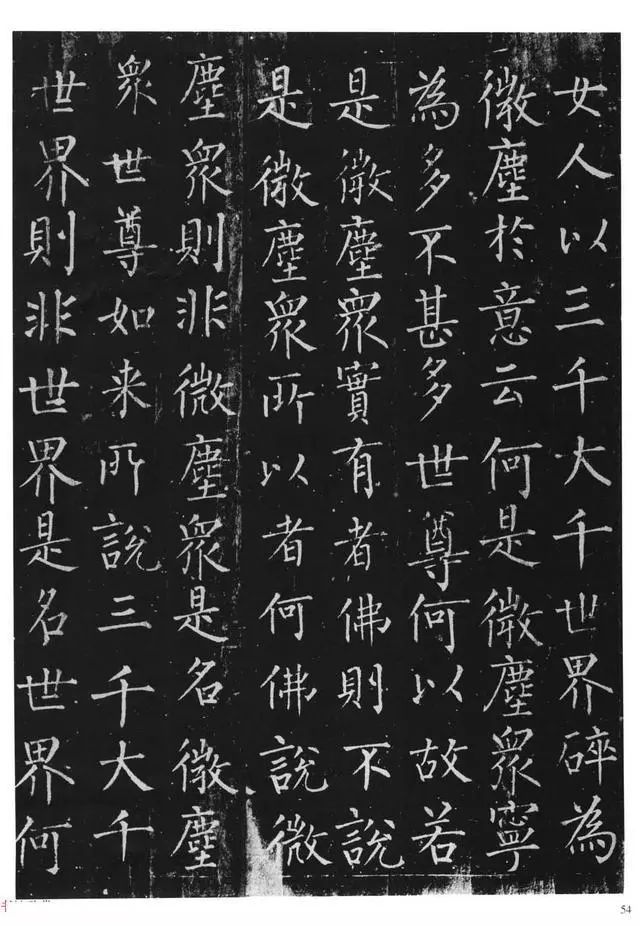 女人以三千大千世界碎為
微塵於意云何是微塵眾寧
為多不甚多世尊何以故若
是微塵眾實有者佛則不說
是微塵眾所以者何佛說微
塵眾則非微塵眾是名微塵
眾世尊如来所說三千大千
世界則非世界是名世界何
54